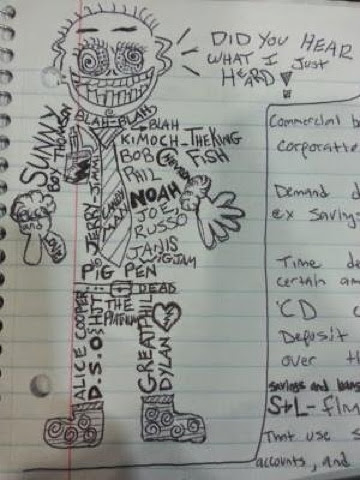 DID YOU HEAR
WHAT I JUST
HEARD
BLAH-BLAH
BLAH
KIMOCH THE KING
BOB
FISH
PHIL
NOAH
JOE
RUSSO
JANIS
WIGJAM
PIG PEN
SUNNY
BOY THOMSON
JERRY
CANDY
MAN
DEAD
THE
PLATINUM
ALICE COOPER
D.S.O
GREAT
PHIL
DYLAN
Commercial b
Corporatte
Demand d
ex Saving
Time de
certain am
CD c
Deposit
over th
savings and loans
S+L- Fina
That use s
accounts, and